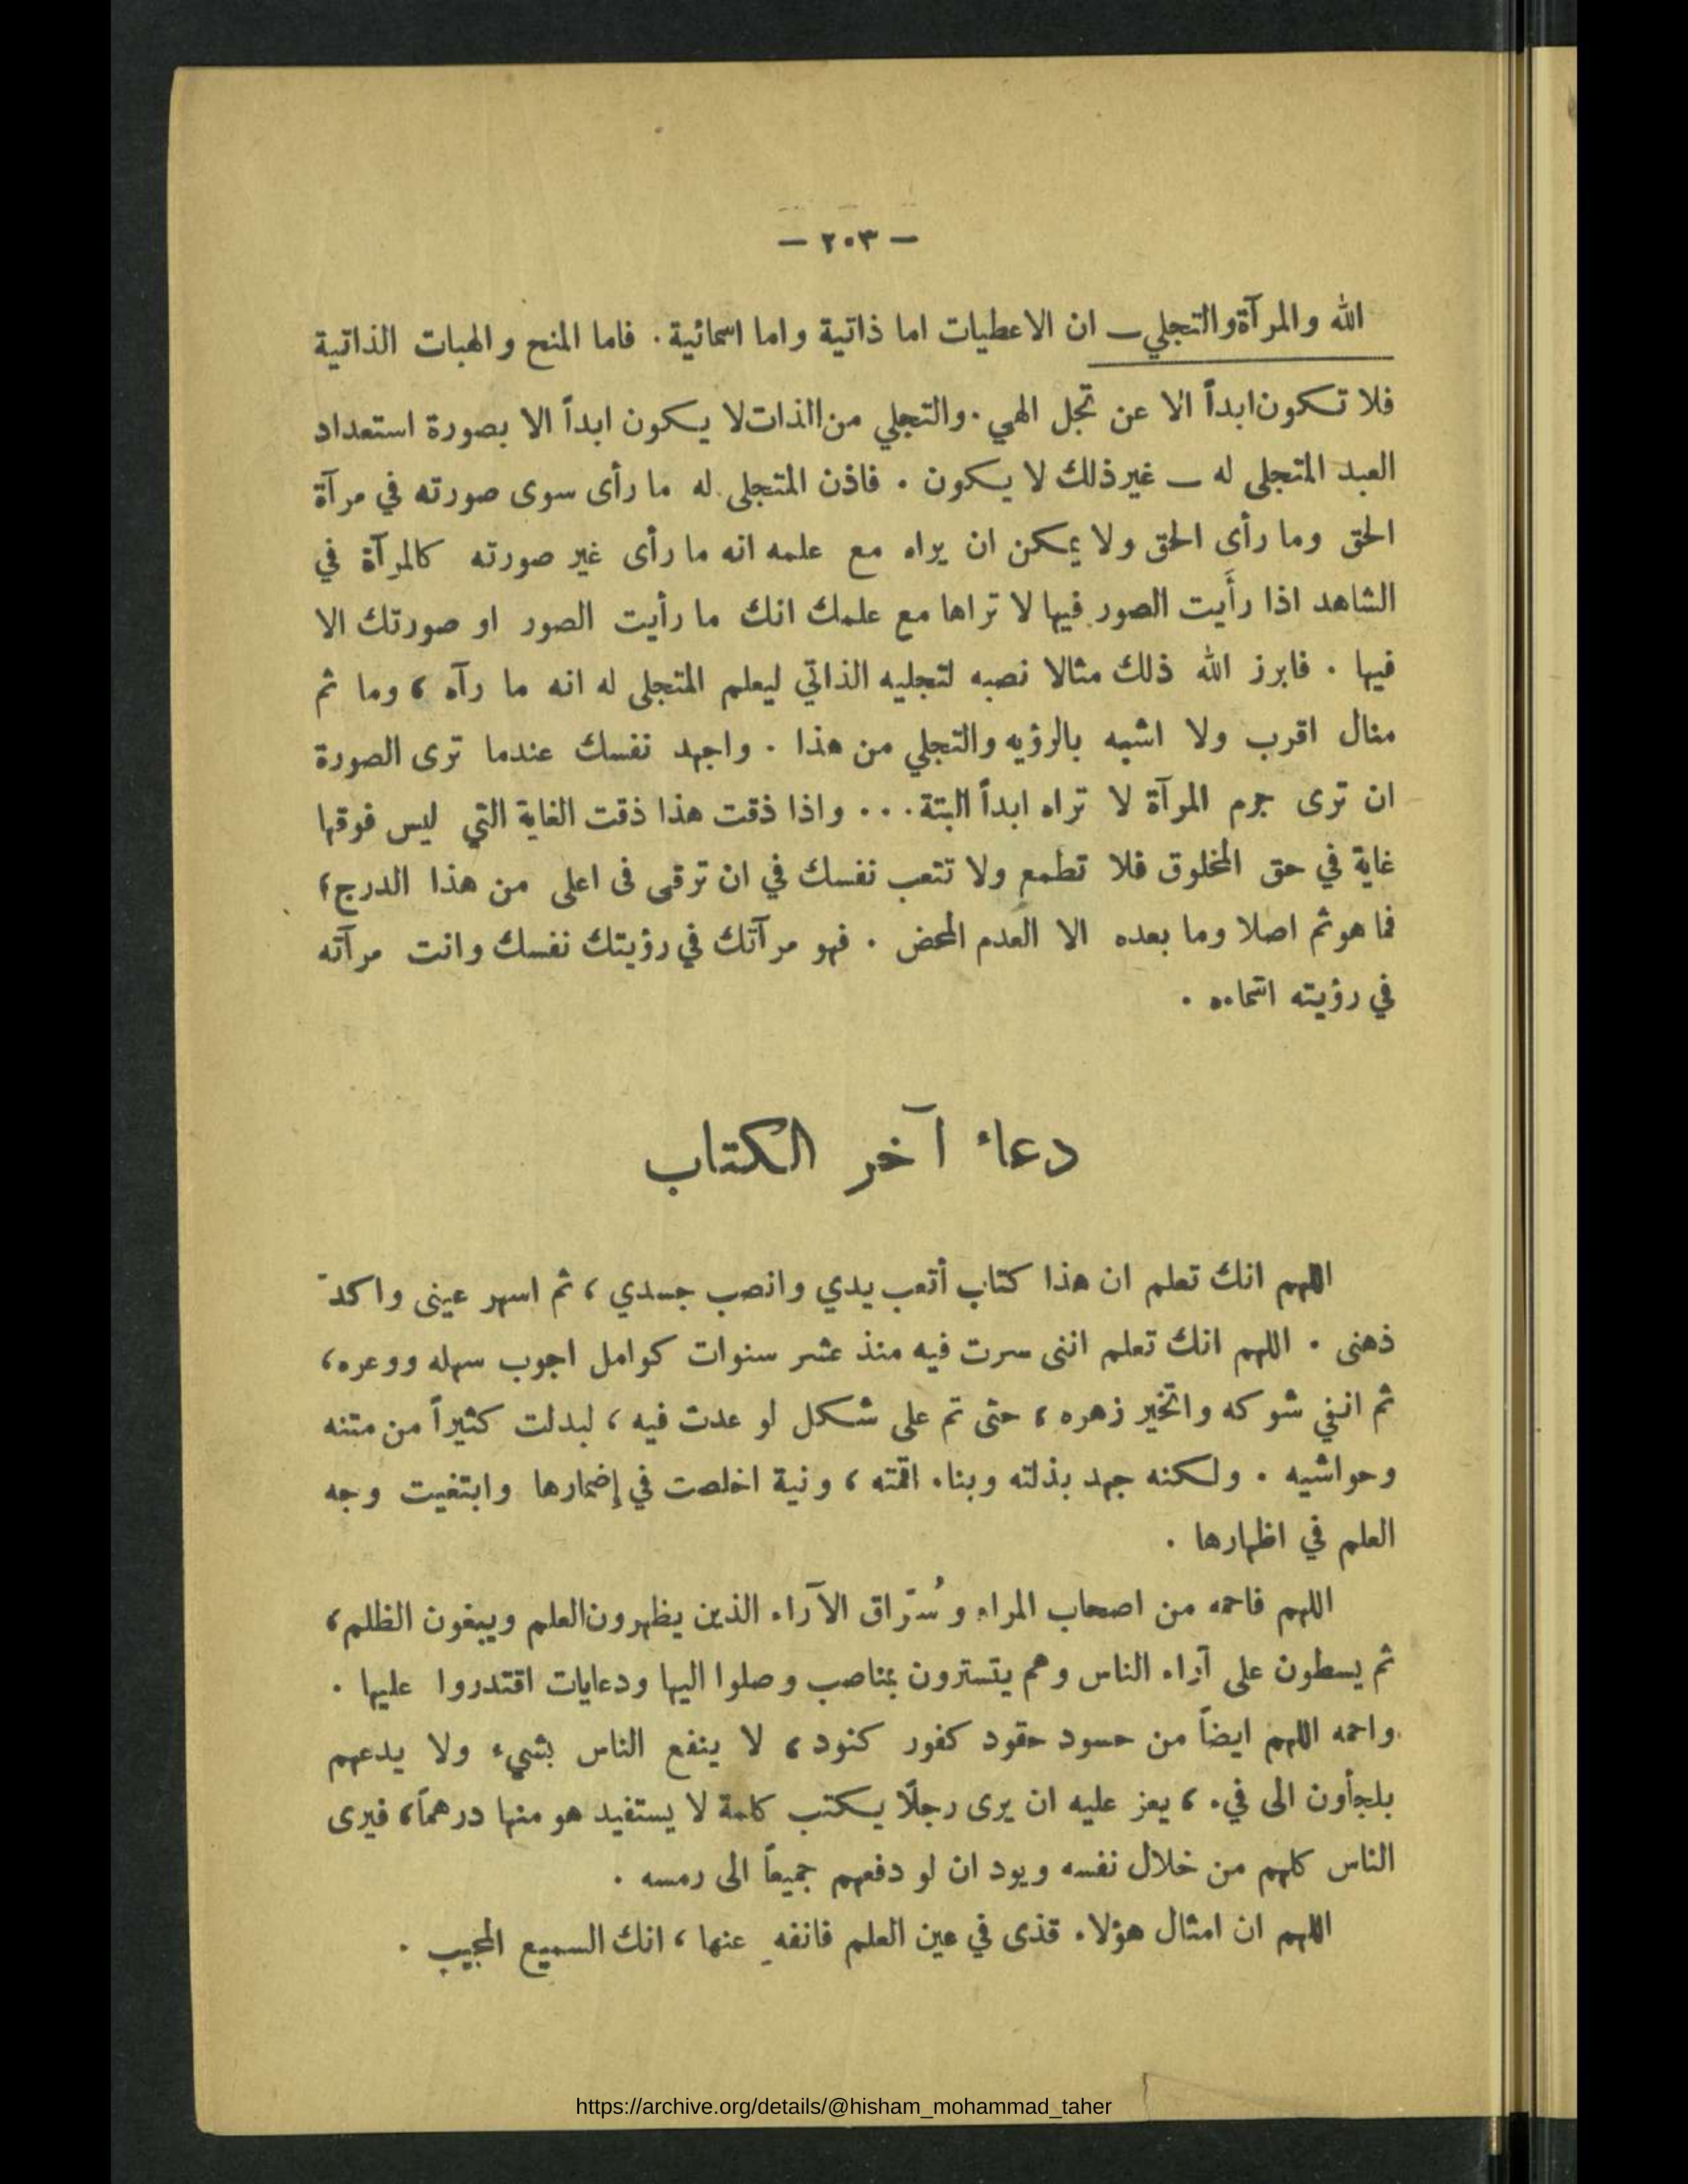 — ٢٠٣ —
الله والمرآة والتجلي — ان الاعطيات اما ذاتية واما اسمائية . فاما المنح والهبات الذاتية
فلا تكون ابداً الا عن تجل الهي . والتجلي من الذات لا يكون ابداً الا بصورة استعداد
العبد المتجلى له — غير ذلك لا يكون . فاذن المتجلى له ما رأى سوى صورته في مرآة
الحق وما رأى الحق ولا يمكن ان يراه مع علمه انه ما رأى غير صورته كالمرآة في
الشاهد اذا رأَيت الصور فيها لا تراها مع علمك انك ما رأيت الصور او صورتك الا
فيها . فابرز الله ذلك مثالا نصبه لتجليه الذاتي ليعلم المتجلى له انه ما رآه ، وما ثم
منال اقرب ولا اشبه بالرؤيه والتجلي من هذا . واجهد نفسك عندما ترى الصورة
ان ترى جرم المرآة لا تراه ابداً البتة . . . واذا ذقت هذا ذقت الغاية التي ليس فوقها
غاية في حق المخلوق فلا تطمع ولا تتعب نفسك في ان ترقى فى اعلى من هذا الدرج ،
فما هو ثم اصلا وما بعده الا العدم المحض . فهو مرآتك في رؤيتك نفسك وانت مرآته
في رؤيته .
دعاء آخر الكتاب
اللهم انك تعلم ان هذا كتاب أتعب يدي وانصب جسدي ، ثم اسهر عينى واكدّ
ذهنى . اللهم انك تعلم اننى سرت فيه منذ عشر سنوات كوامل اجوب سهله ووعره ،
ثم انفي شوكه واتخير زهره ، حتى تم على شكل لو عدت فيه ، لبدلت كثيراً من متنه
وحواشيه . ولكنه جهد بذلته وبناء اقمته ، ونية اخلصت في إضمارها وابتغيت وجه
العلم في اظهارها .
اللهم فاحمه من اصحاب المراء وسُرّاق الآراء الذين يظهرون العلم ويبغون الظلم ،
ثم يسطون على آراء الناس وهم يتسترون بمناصب وصلوا اليها ودعايات اقتدروا عليها .
واحمه اللهم ايضاً من حسود حقود كفور كنود ، لا ينفع الناس بشيء ولا يدعهم
يلجأون الى فيء ، يعز عليه ان يرى رجلًا يكتب كلمة لا يستفيد هو منها درهماً ، فيرى
الناس كلهم من خلال نفسه ويود ان لو دفعهم جميعاً الى رمسه .
اللهم ان امثال هؤلاء قذى في عين العلم فانفهِ عنها ، انك السميع المجيب .
https://archive.org/details/@hisham_mohammad_taher